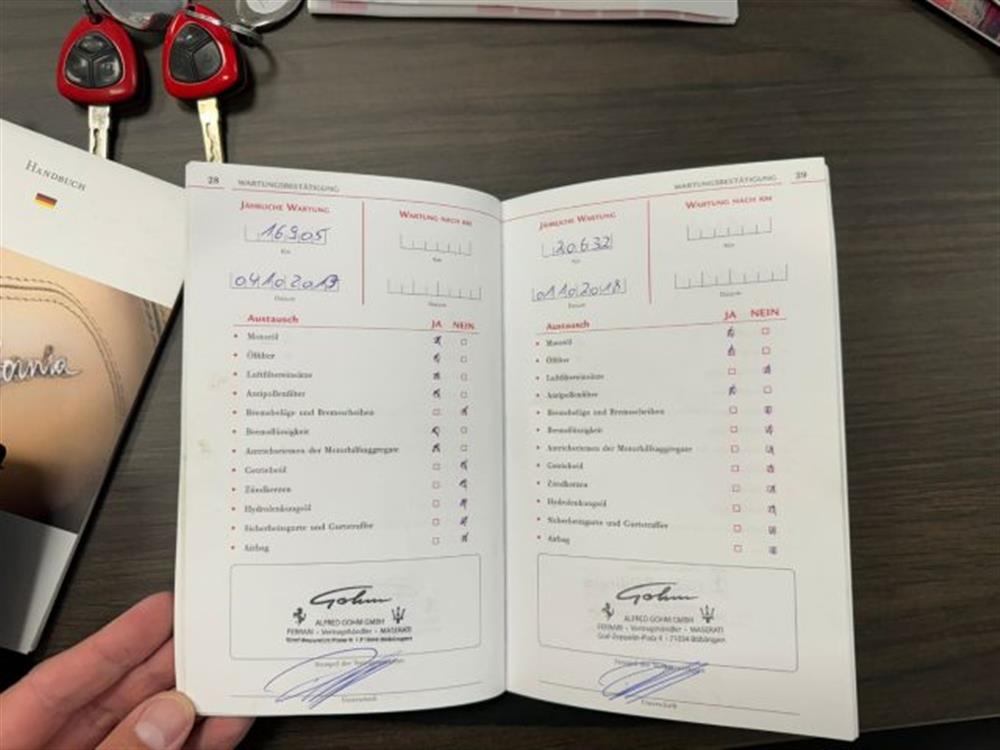 HANDBUCH
28 WARTUNGSBESTÄTIGUNG
JÄHRLICHE WARTUNG
WARTUNG NACH KM
16905
Km
Km
04102017
Datum
Datum
Austausch JA NEIN
• Motoröl
• Ölfilter
• Luftfiltereinsätze
• Antipollenfilter
• Bremsbeläge und Bremsscheiben
• Bremsflüssigkeit
• Antriebsriemen der Motorhilfsaggregate
• Getriebeöl
• Zündkerzen
• Hydrolenkungsöl
• Sicherheitsgurte und Gurtstraffer
• Airbag
Gohm
ALFRED GOHM GMBH
FERRARI - Vertragshändler - MASERATI
Graf-Zeppelin-Platz 1 71034 Böblingen
Unterschrift
WARTUNGSBESTÄTIGUNG 29
JÄHRLICHE WARTUNG
WARTUNG NACH KM
20632
Km
Km
01102018
Datum
Datum
Austausch JA NEIN
• Motoröl
• Ölfilter
• Luftfiltereinsätze
• Antipollenfilter
• Bremsbeläge und Bremsscheiben
• Bremsflüssigkeit
• Antriebsriemen der Motorhilfsaggregate
• Getriebeöl
• Zündkerzen
• Hydrolenkungsöl
• Sicherheitsgurte und Gurtstraffer
• Airbag
Gohm
ALFRED GOHM GMBH
FERRARI - Vertragshändler - MASERATI
Graf-Zeppelin-Platz 1 71034 Böblingen
Unterschrift